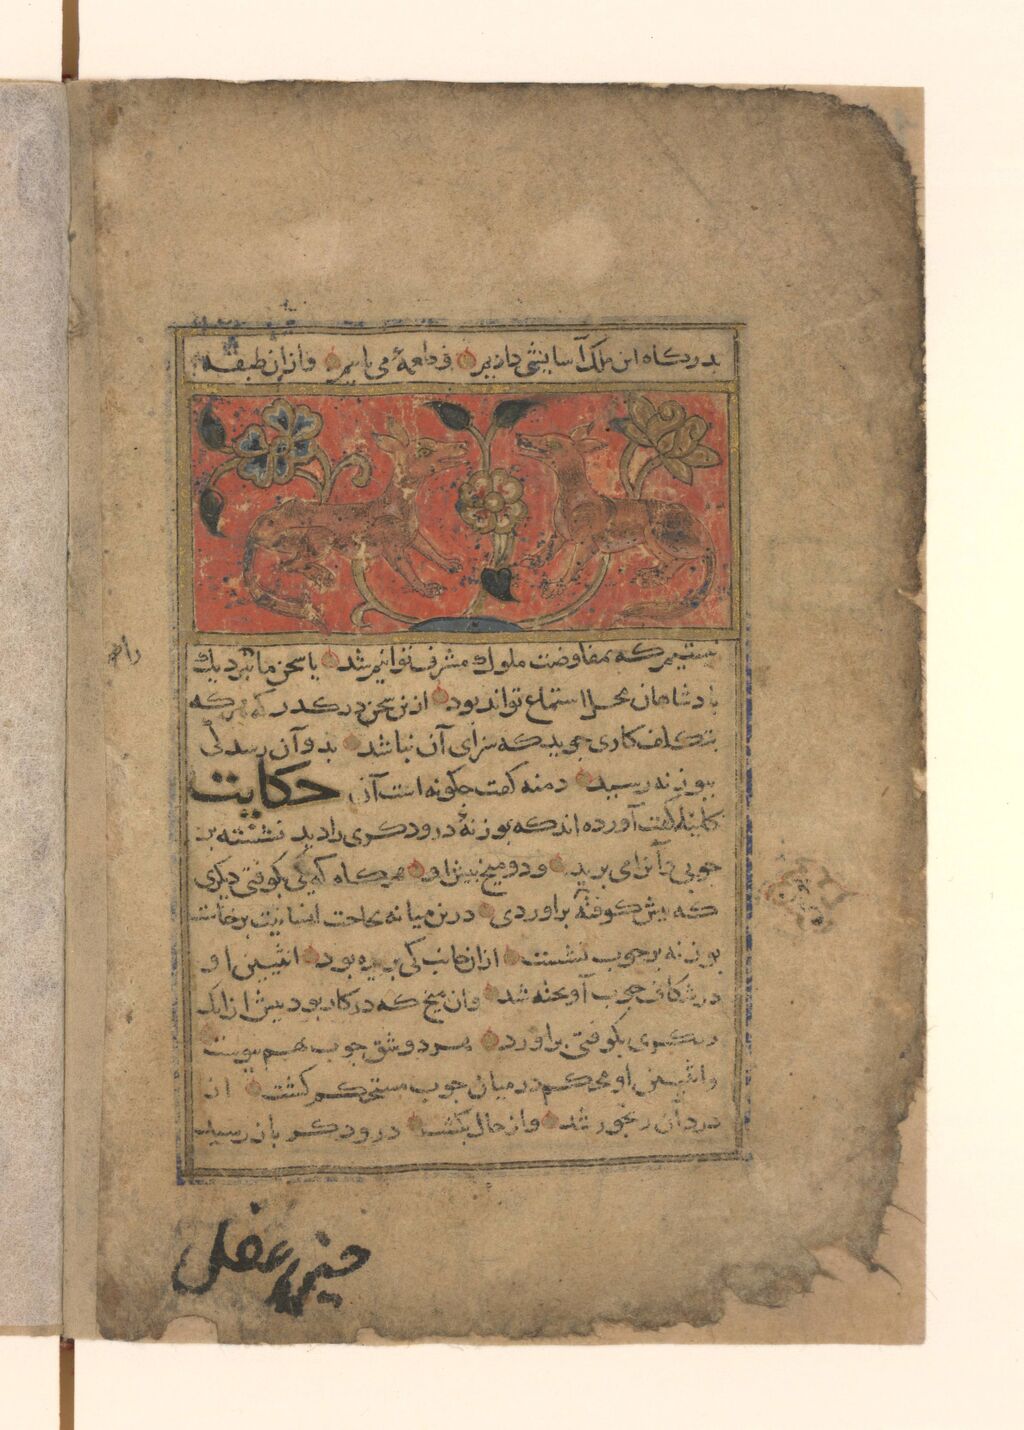 بدرگاه این ملک آسایشی داریم و طعمهٔ می یابیم و از ان طبقه
نیستیم که بمفاوضت ملوک مشرف توانیم شد یا سخن ما نزدیک
پادشاهان محل استماع تواند بود ازین سخن درگذر که هر که
بتکلف کاری جوید که سزای آن نباشد بدو آن رسد کی
ببوزنه رسید دمنه گفت چگونه است آن حکایت
کلیله گفت آورده اند که بوزنهٔ درودگری را دید نشسته بر
چوبی و آنرا می برید و دو میخ پیش او هرگاه که یکی بکوفتی دیگری
که پیش کوفته براوردی درین میانه بحاجت انسانیت برخاست
بوزنه بر چوب نشست از ان جانب کی بریده بود انثیین او
در شکاف چوب آویخته شد وان میخ که در کار بود پیش از انک
دیگری بکوفتی براورد هر دو شق چوب بهم پیوست
وانثیین او محکم در میان چوب مستحکم گشت از
درد آن رنجور شد و از حال بگشت درودگر باز رسید